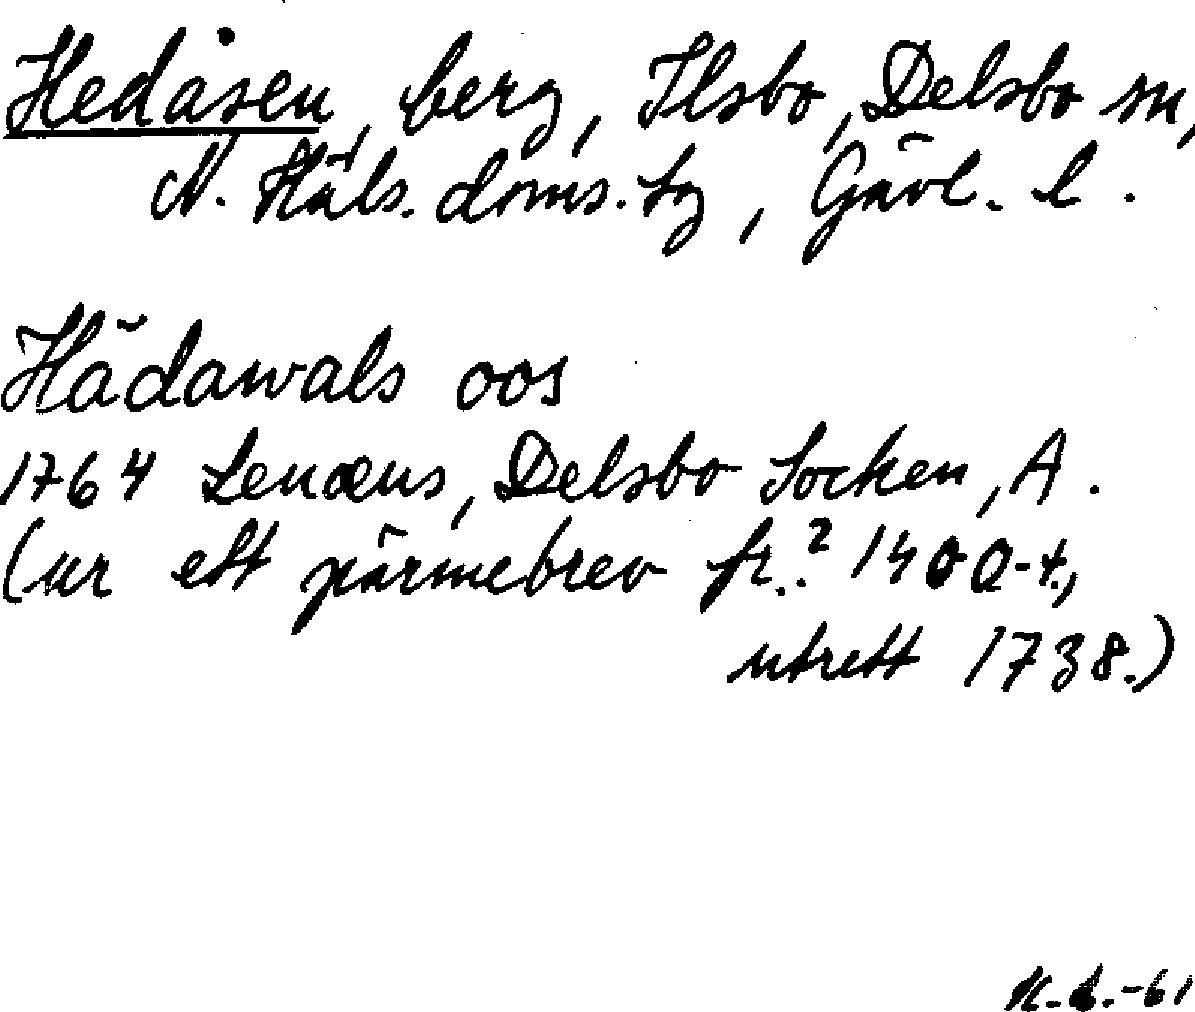 Hedåsen, berg, Ilsbo, Delsbo sn,
N. Häls. doms. tg, Gävl. l.
Hädawals oos
1764 Lenæus, Delsbo Socken, A.
(ur ett pärmebrev fr.? 1400-t.,
utrett 1738.)
-61